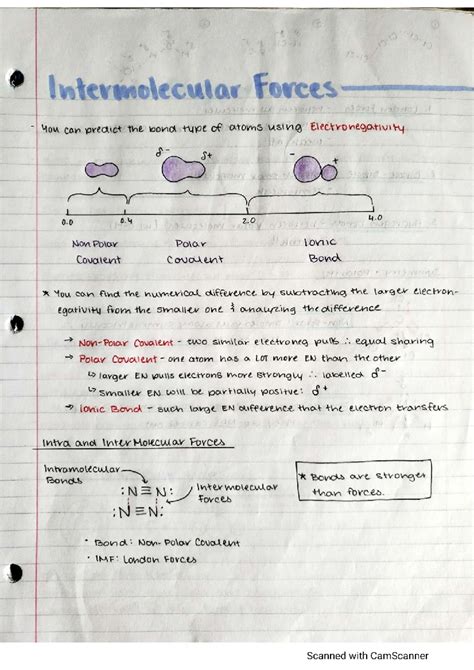 Intermolecular Forces
- You can predict the bond type of atoms using Electronegativity
δ- δ+ - +
0.0 0.4 2.0 4.0
Non Polar Polar Ionic
Covalent Covalent Bond
* You can find the numerical difference by subtracting the larger electron-
egativity from the smaller one & analyzing the difference
→ Non-Polar Covalent - two similar electroneg pulls ∴ equal sharing
→ Polar Covalent - one atom has a LOT more EN than the other
↳ larger EN pulls electrons more strongly ∴ labelled δ-
↳ smaller EN will be partially positive: δ+
→ Ionic Bond - such large EN difference that the electron transfers
Intra and Inter Molecular Forces
Intramolecular
Bonds
:N≡N:
:N≡N:
Intermolecular
Forces
* Bonds are stronger
than forces.
· Bond: Non-Polar Covalent
· IMF: London Forces
Scanned with CamScanner